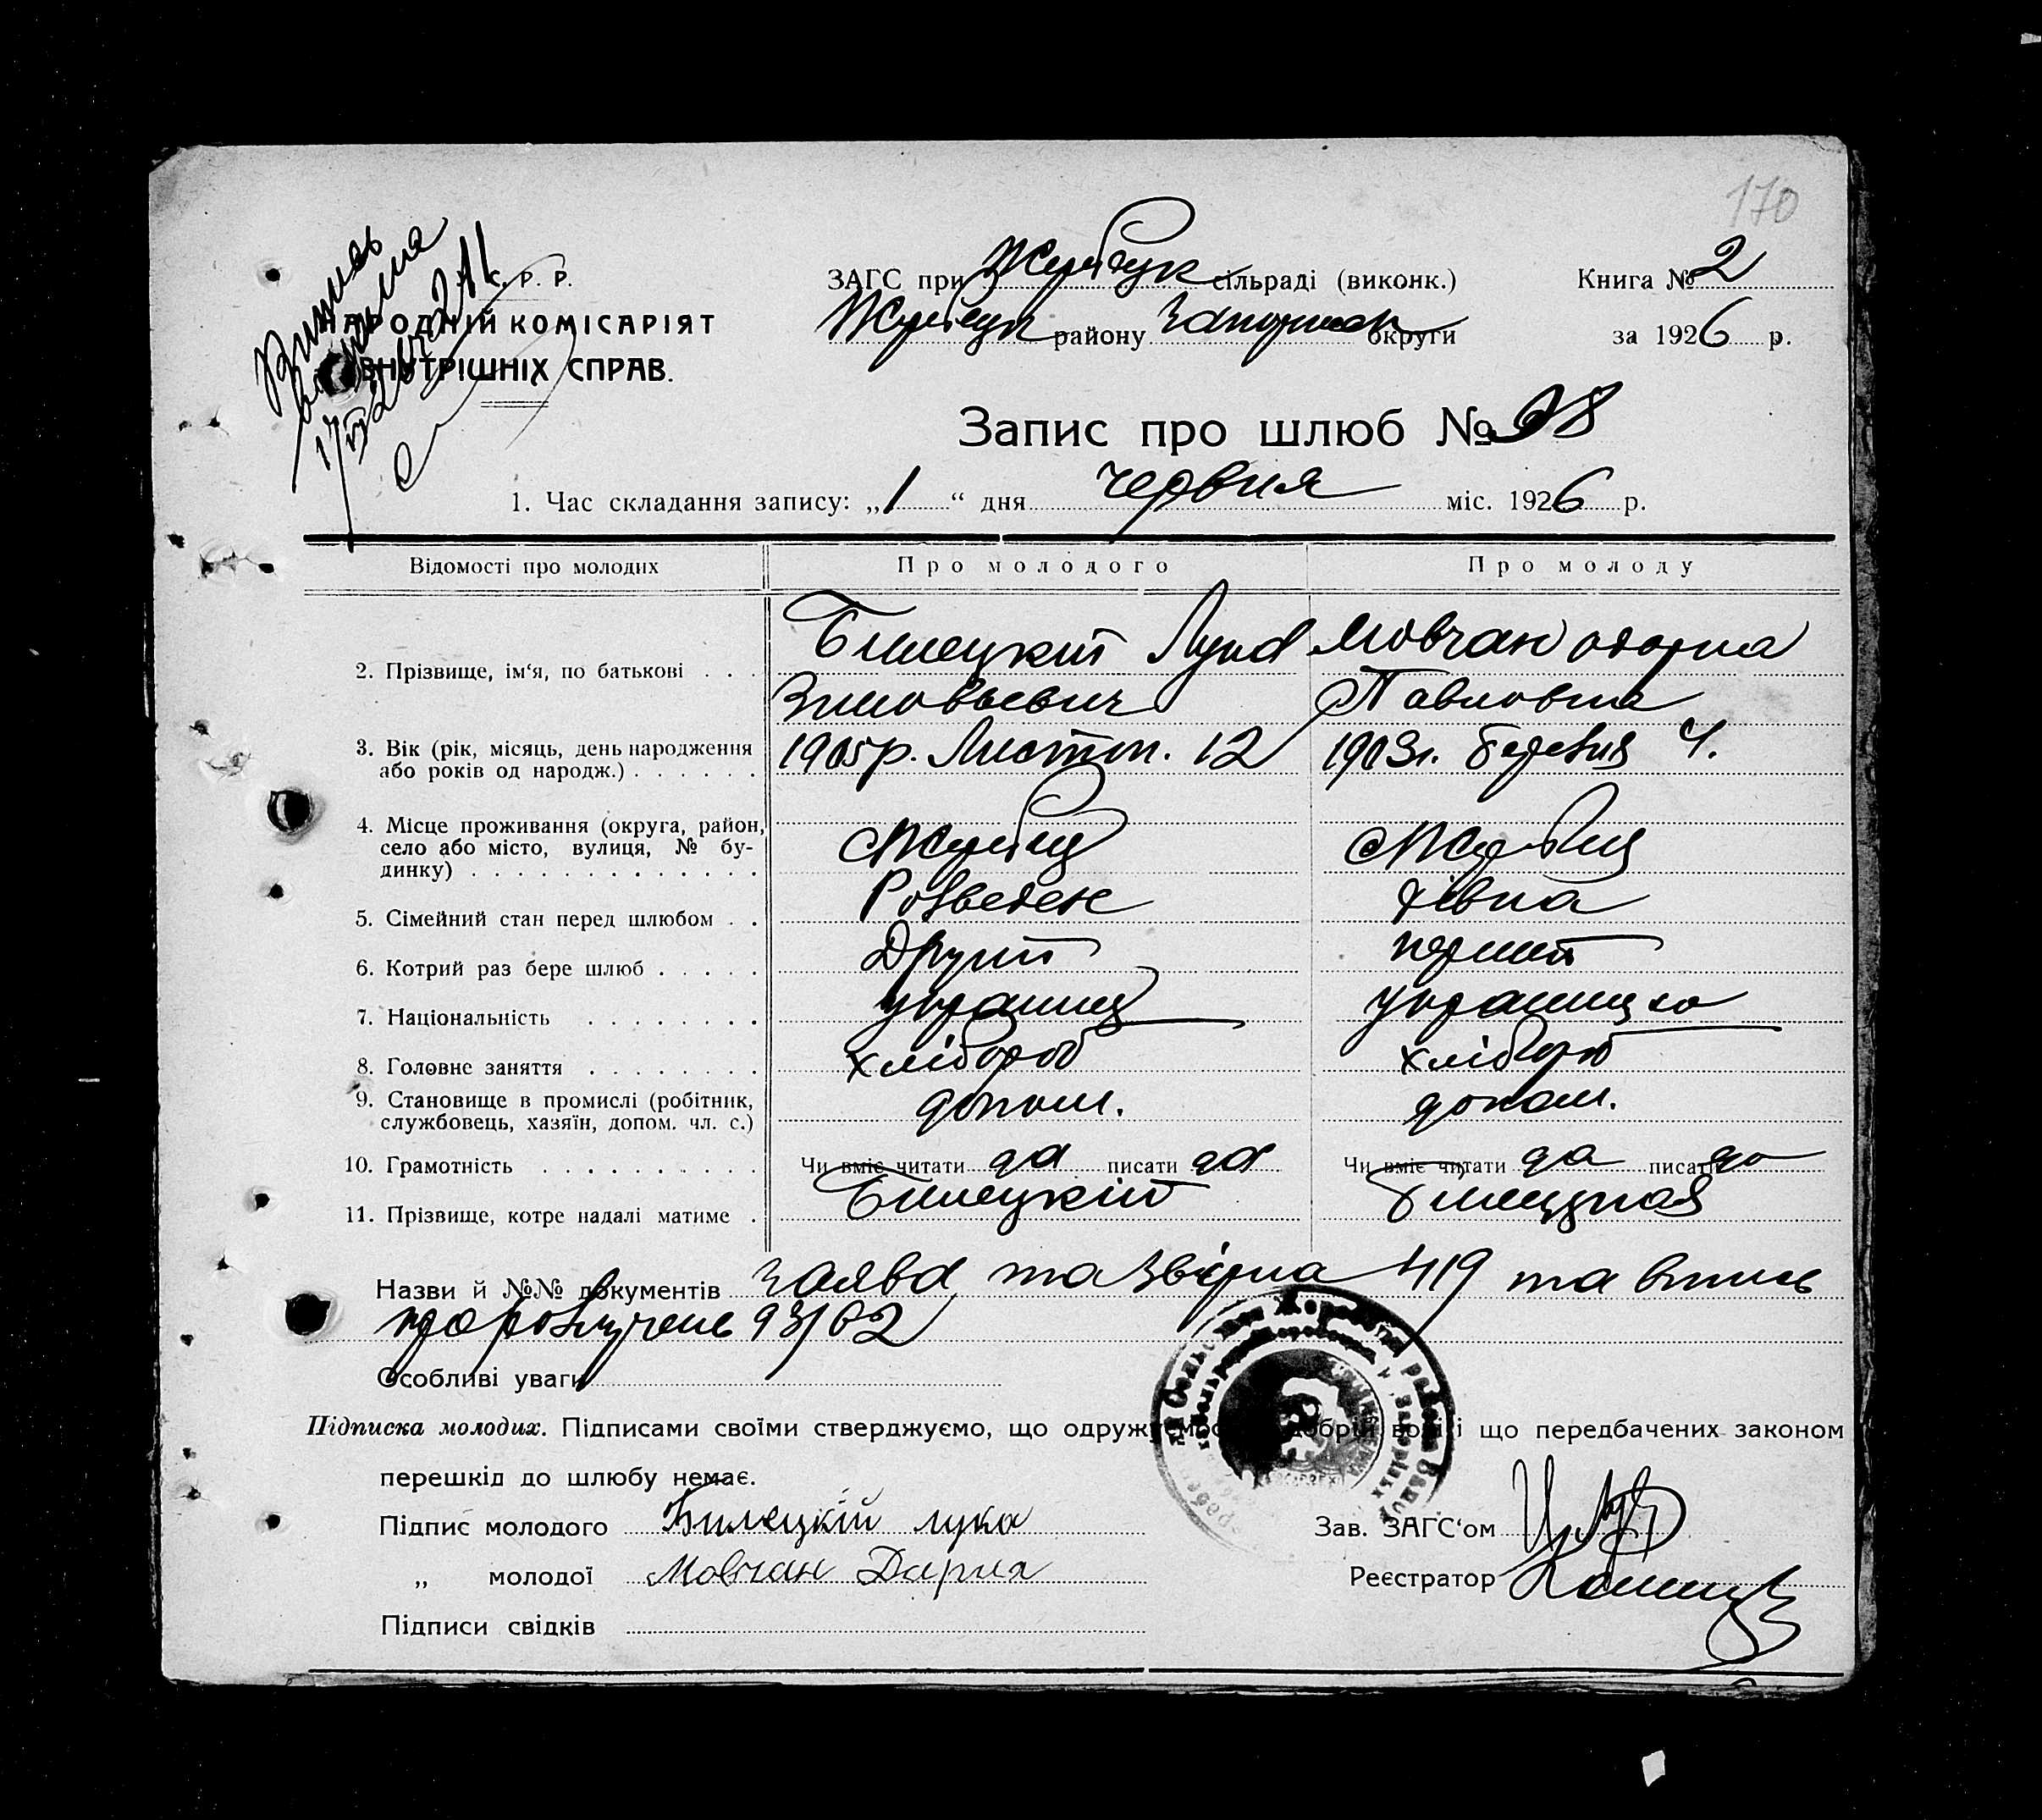 170
У. С. Р. Р.
НАРОДНІЙ КОМІСАРІЯТ
ВНУТРІШНІХ СПРАВ.
ЗАГС при Жеребецк сільраді (виконк.) Книга № 2
Жеребецк району Запорізьк округи за 1926 р.
Запис про шлюб № 98
1. Час складання запису: „1“ дня червня міс. 1926 р.
Відомості про молодих Про молодого Про молоду
2. Прізвище, ім‘я, по батькові . . . Билецкий Лука Мовчан одарка
Зиновьевич Павловна
3. Вік (рік, місяць, день народження 1905 р. Листоп. 12 1903 г. березня 4.
або років од народж.) . . . . . .
4. Місце проживання (округа, район, Жеребец Жеребец
село або місто, вулиця, № бу-
динку) . . . . . . . . . . . . .
5. Сімейний стан перед шлюбом . . Розведен дівка
6. Котрий раз бере шлюб . . . . . Другий перший
7. Національність . . . . . . . . украинец украинцко
8. Головне заняття . . . . . . . . хлібороб хлібороб
9. Становище в промислі (робітник, допом. допом.
службовець, хазяїн, допом. чл. с.)
10. Грамотність . . . . . . . . . . Чи вміє читати да писати да Чи вміє читати да писати да
11. Прізвище, котре надалі матиме . Билецкій Билецкая
Назви й №№ документів заява та звірка 419 та впись
про розлучень 93/02
Особливі уваги
Підписка молодих. Підписами своїми стверджуємо, що одружуємось по добрій волі і що передбачених законом
перешкід до шлюбу немає.
Підпис молодого Билецкій лука Зав. ЗАГС‘ом
„ молодої Мовчан Дария Реєстратор
Підписи свідків